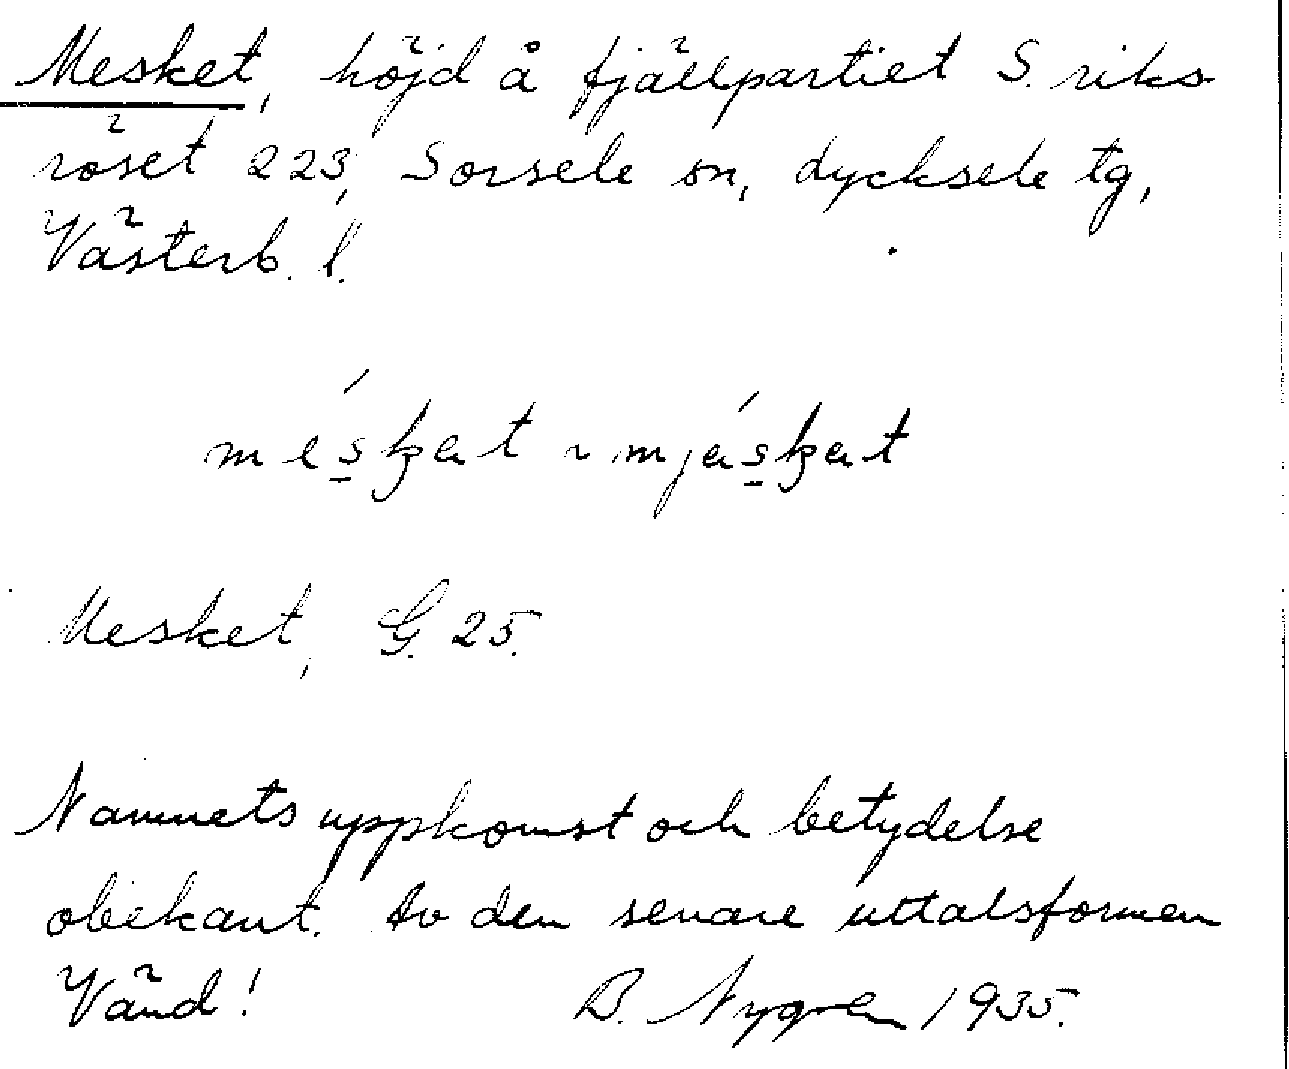 Mesket, höjd å fjällpartiet S. riks
röset 223, Sorsele sn, Lycksele tg,
Västerb. l.
méskat ~ mjáskat
Mesket, G. 25.
Namnets uppkomst och betydelse
obekant. Av den senare uttalsformen
Vänd! B. Nygren 1935.